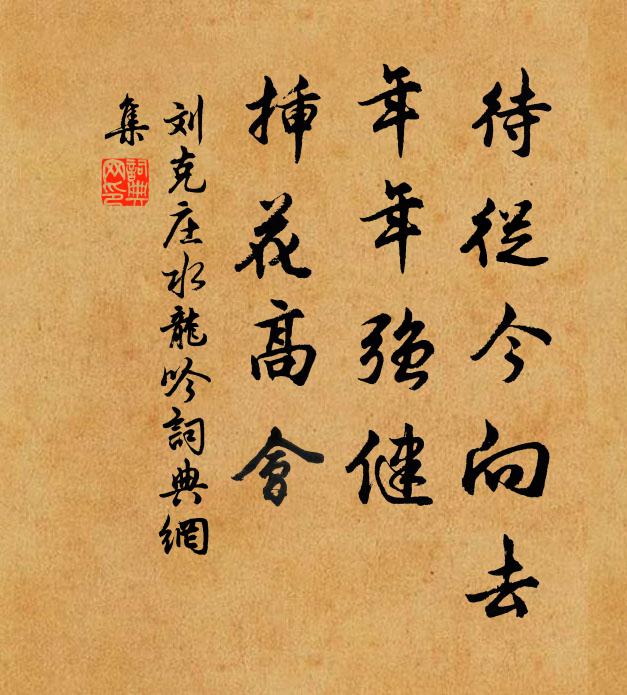 待從今向去
年年强健
揷花高會
刘克庄水龍吟詞典網
集
詞典
网印